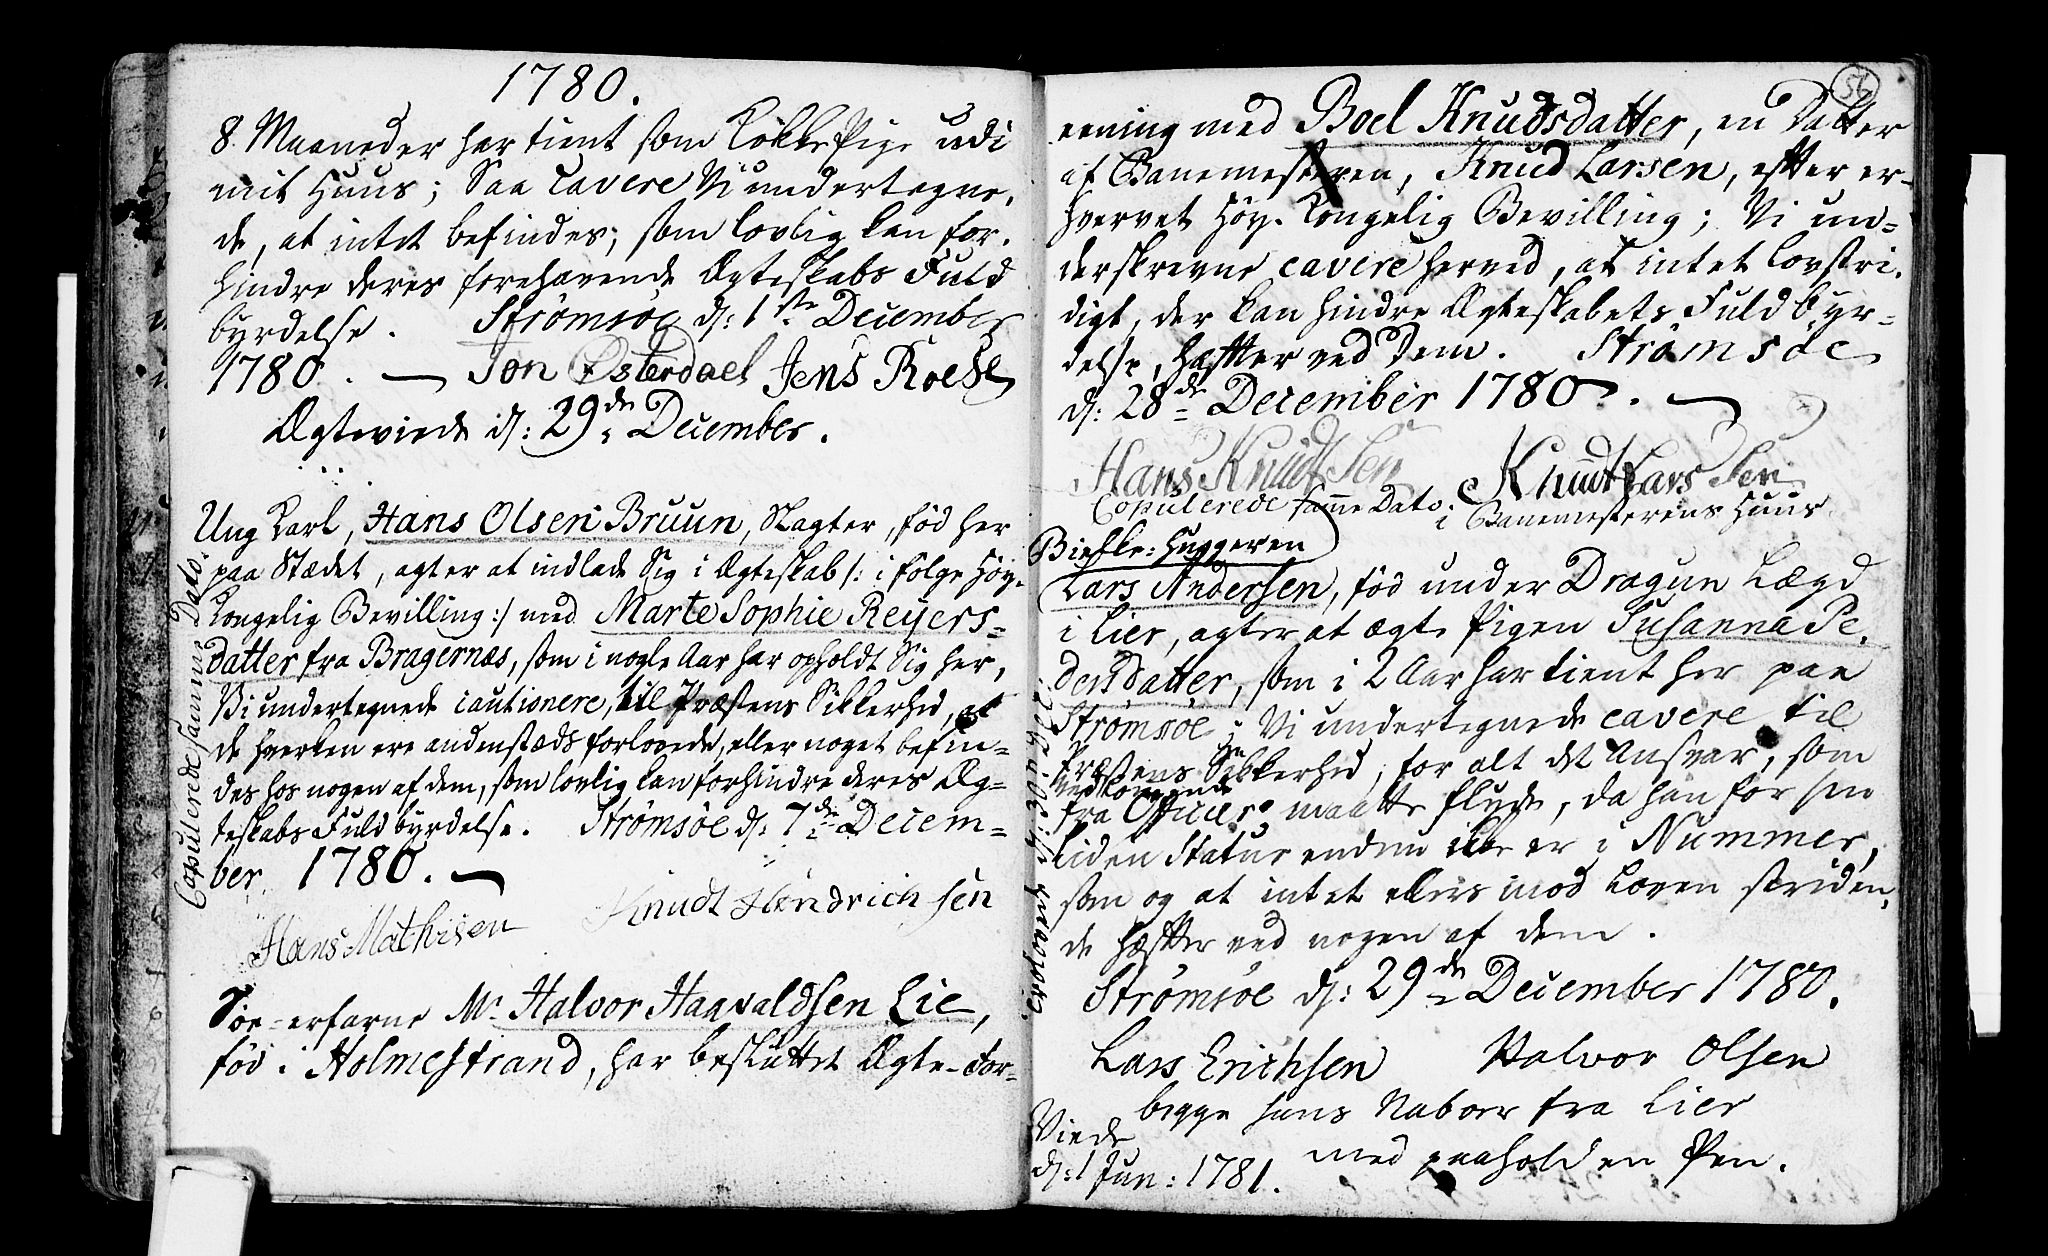 1780.
8. Maaneder har tient som Kokke Pige udi
mit Huus; Saa cavere Vi undertegne,
de, at intet befindes; som lovlig kan for.
hindre deres forehavende Ægteskabs Fuld
byrdelse. Strømsøe d: 1ste December
1780. — Jon Østerdael Jens Roese
Ægteviede d: 29de December.
Ung Karl, Hans Olsen Bruun, Slagter, fød her
paa Stædet, agter at indlade Sig i Ægteskab /: i følge Høy-
Kongelig Bevilling :/ med Marte Sophie Reyers=
datter fra Bragernæs, som i nogle Aar har opholdt Sig her,
Vi undertegnede cautionere, til Præstens Sikkerhed, at
de hverken ere andenstæds forlovede, eller noget befin=
des hos nogen af dem, som lovlig kan forhindre deres Æg=
teskabs Fuldbyrdelse. Strømsøe d: 7de Decem=
ber 1780. —
Copulerede samme Dato.
Hans Mathisen Knudt Hendrichsen
Søe=erfarne Mr. Halvor Haavaldsen Lie,
fød i Holmestrand, har besluttet Ægte-For=
56
eening med Boel Knudsdatter, en Datter
af Banemesteren, Knud Larsen, efter er=
hvervet Høy. Kongelig Bevilling; Vi un=
derskrevne cavere herved, at intet lovstri.
digt, der kan hindre Ægteskabets Fuldbyr=
delse, hæfter ved Dem. Strømsöe
d: 28de December 1780. —
Hans Knudtsen Knudt Larssen
Copulerede samme Dato i Banemesterens Huus
Huggeren
Lars Andersen, fød under Dragun Lægd
i Lier, agter at ægte Pigen Susanna Pe,
dersdatter, som i 2 Aar har tient her paa
Strømsøe; Vi undertegnede cavere til
Præstens Sikkerhed, for alt det Ansvar, som
Vedkommende
fra Officer maatte flyde, da han for sin
liden Statur endnu ikke er i Nummer,
som og at intet ellers imod Loven striden,
de hæfter ved nogen af dem.
Strømsøe d: 29de December 1780.
Trolovede d: 30. Dec:
Lars Erichsen Halvor Olsen
begge hans Naboer fra Lier
med paaholden Pen.
Viede
d: 1 Jan: 1781.